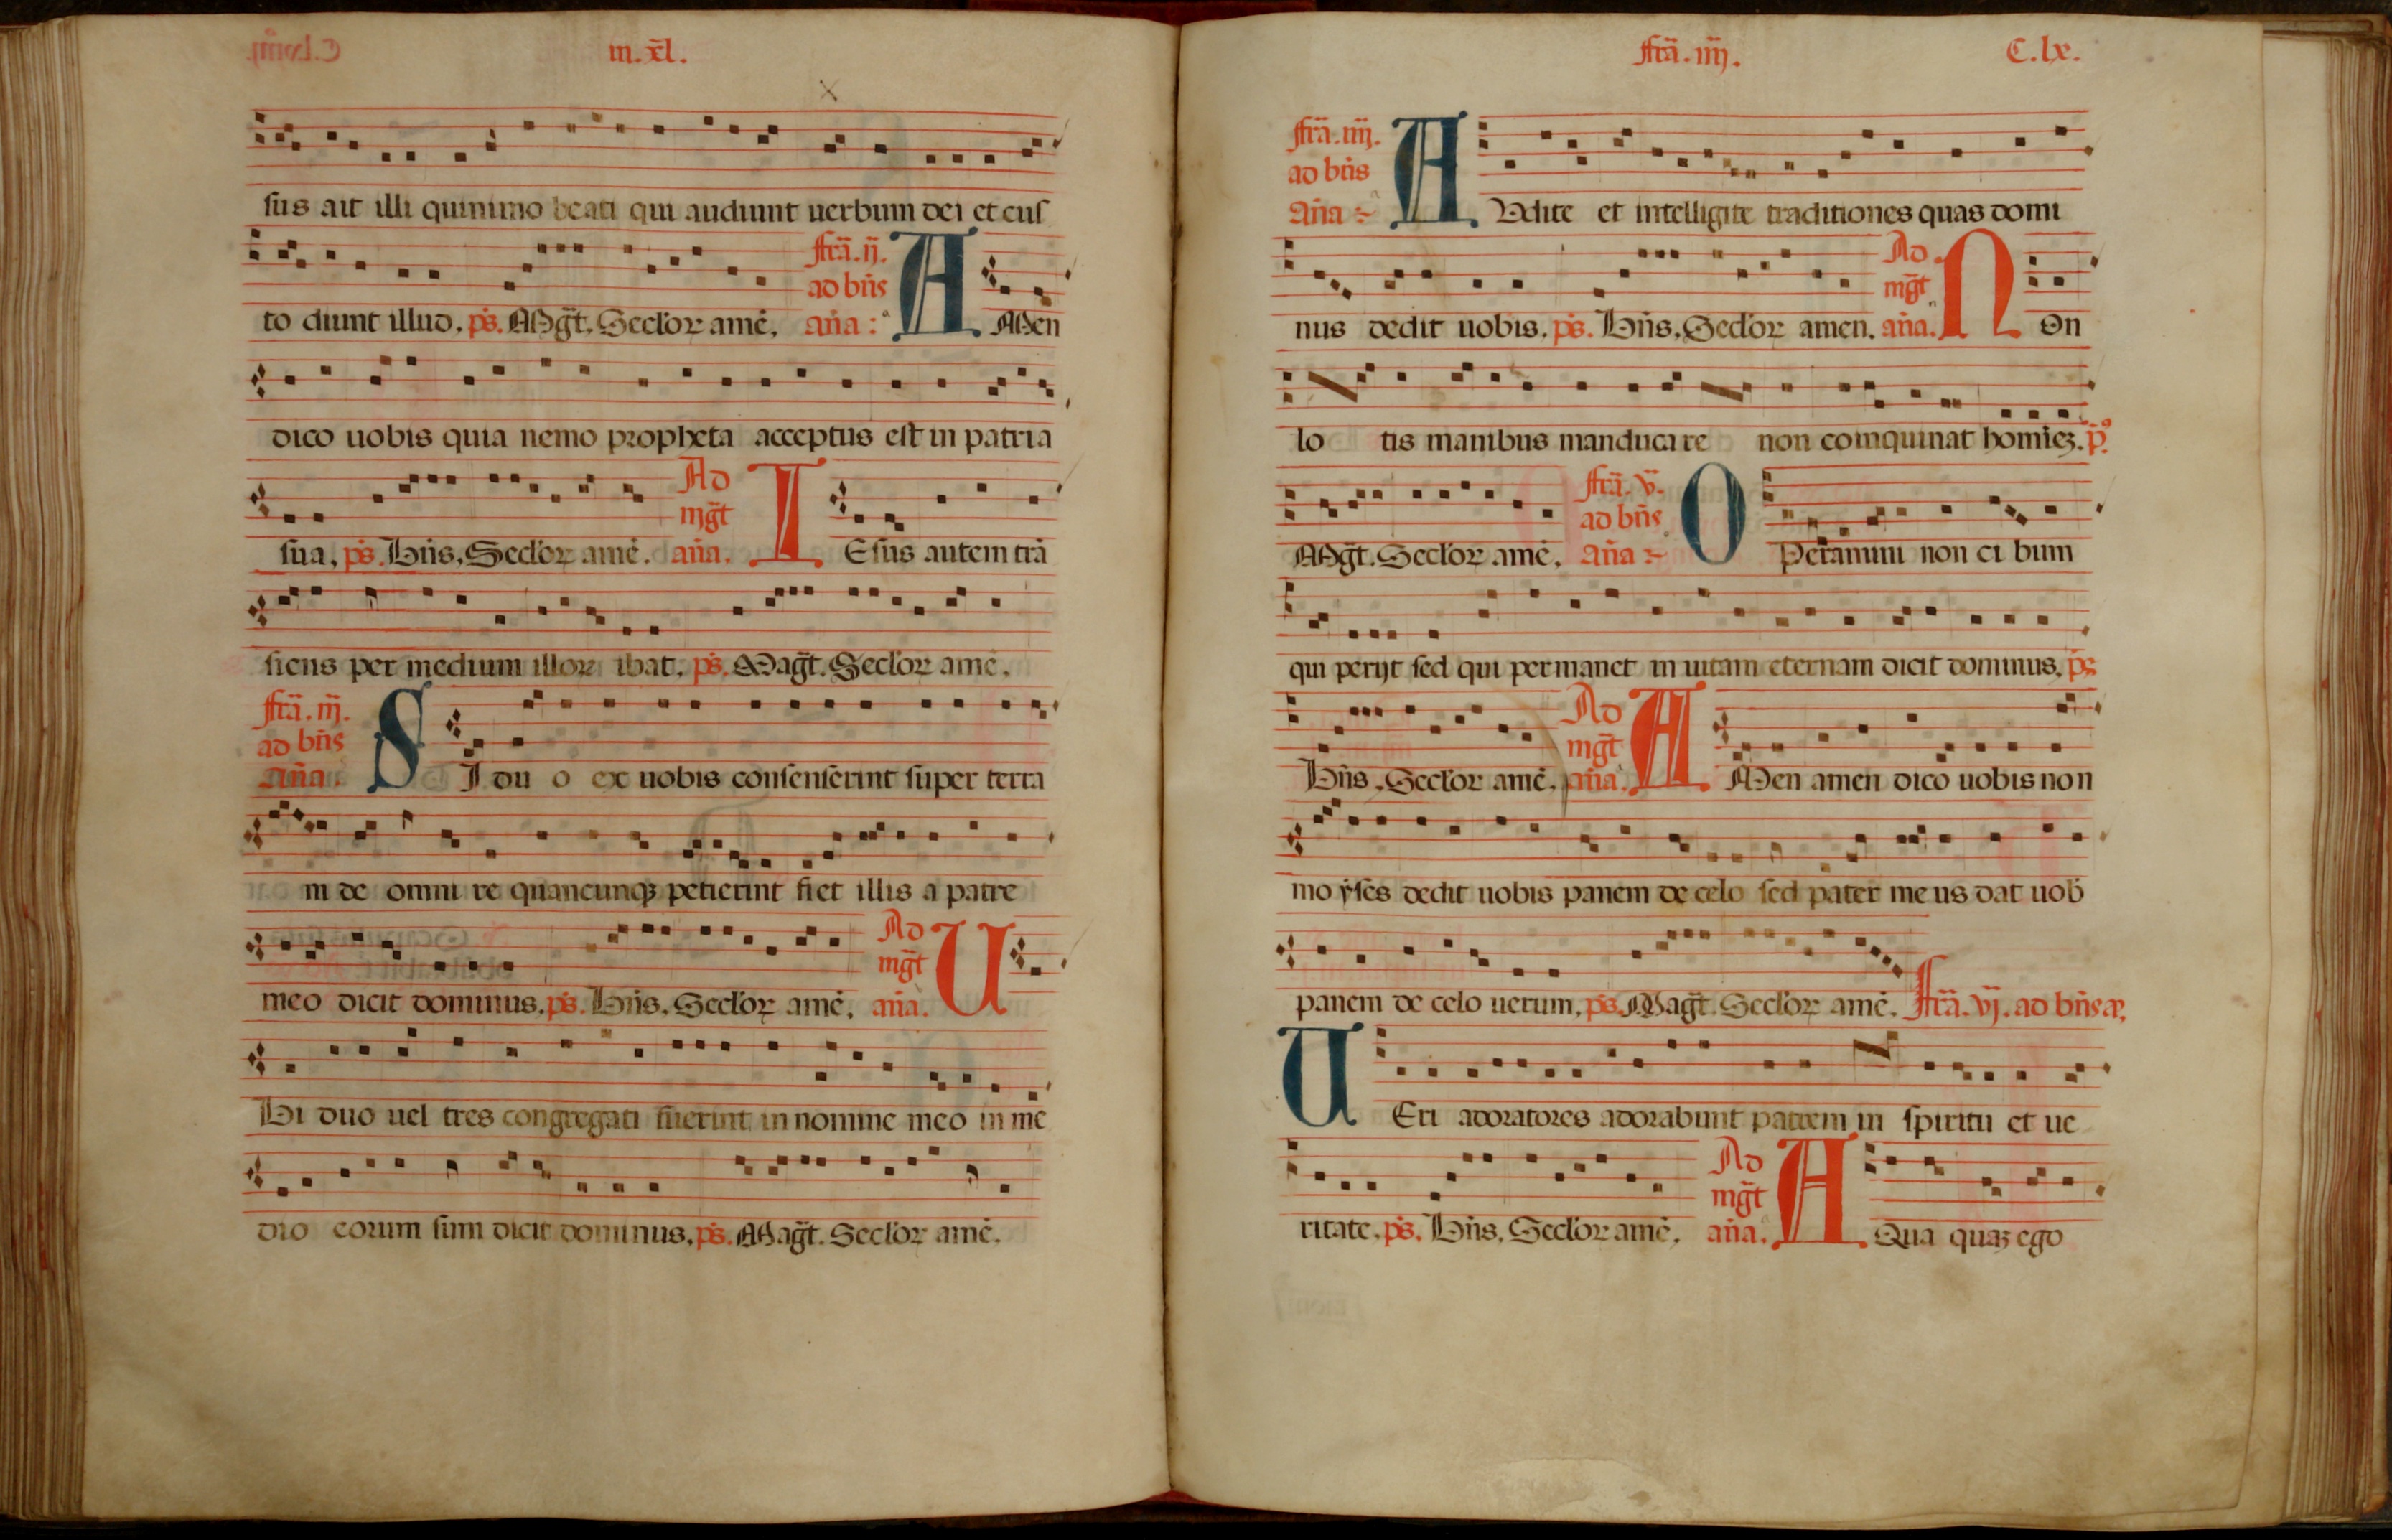 m.xl̄.
sus ait illi quinimo beati qui audiunt uerbum dei et cus
to diunt illud. ps̄. Mag̃t. Secl'oꝝ amē. fr̄a.ij. ad bn̄s an̄a: AMen
dico uobis quia nemo propheta acceptus est in patria
sua. ps̄. Bn̄s. Secl'oꝝ amē. Ad mg̃t an̄a. IEsus autem trā
siens per medium illoꝝ ibat. ps̄. Mag̃t. Secl'oꝝ amē.
fr̄a.iij. ad bn̄s an̄a. SI du o ex uobis consenserint super terra
m de omni re quancunqꝫ petierint fiet illis a patre
meo dicit dominus. ps̄. Bn̄s. Secl'oꝝ amē. Ad mg̃t an̄a. U
Bi duo uel tres congregati fuerint in nomine meo in me
dio eorum sum dicit dominus. ps̄. Mag̃t. Secl'oꝝ amē.
fr̄a.iiij. C.lx.
fr̄a.iiij. ad bn̄s an̄a AUdite et intelligite traditiones quas domi
nus dedit uobis. ps̄. Bn̄s. Secl'oꝝ amen. Ad mg̃t an̄a. NOn
lo tis manibus manducare non coinquinat homiēꝫ. p̄.
Mg̃t. Secl'oꝝ amē. fr̄a.v. ad bn̄s an̄a OPeramini non ci bum
qui perijt sed qui permanet in uitam eternam dicit dominus. ps̄
Bn̄s. Secl'oꝝ amē. Ad mg̃t an̄a. AMen amen dico uobis non
mo ẏses dedit uobis panem de celo sed pater me us dat uob̄
panem de celo uerum. ps̄. Mag̃t. Secl'oꝝ amē. Fr̄a.vj. ad bn̄s a.
UEri adoratores adorabunt patrem in spiritu et ue
ritate. ps̄. Bn̄s. Secl'oꝝ amē. Ad mg̃t an̄a. AQua quaꝫ ego